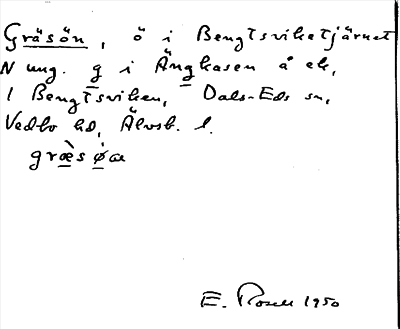 Gräsön, ö i Bengtsviketjärnet
N ung. g i Ängkasen å ek,
1 Bengtsviken, Dals-Eds sn,
Vedbo hd, Älvsb. l.
græ̀s øa
E. Rosell 1950